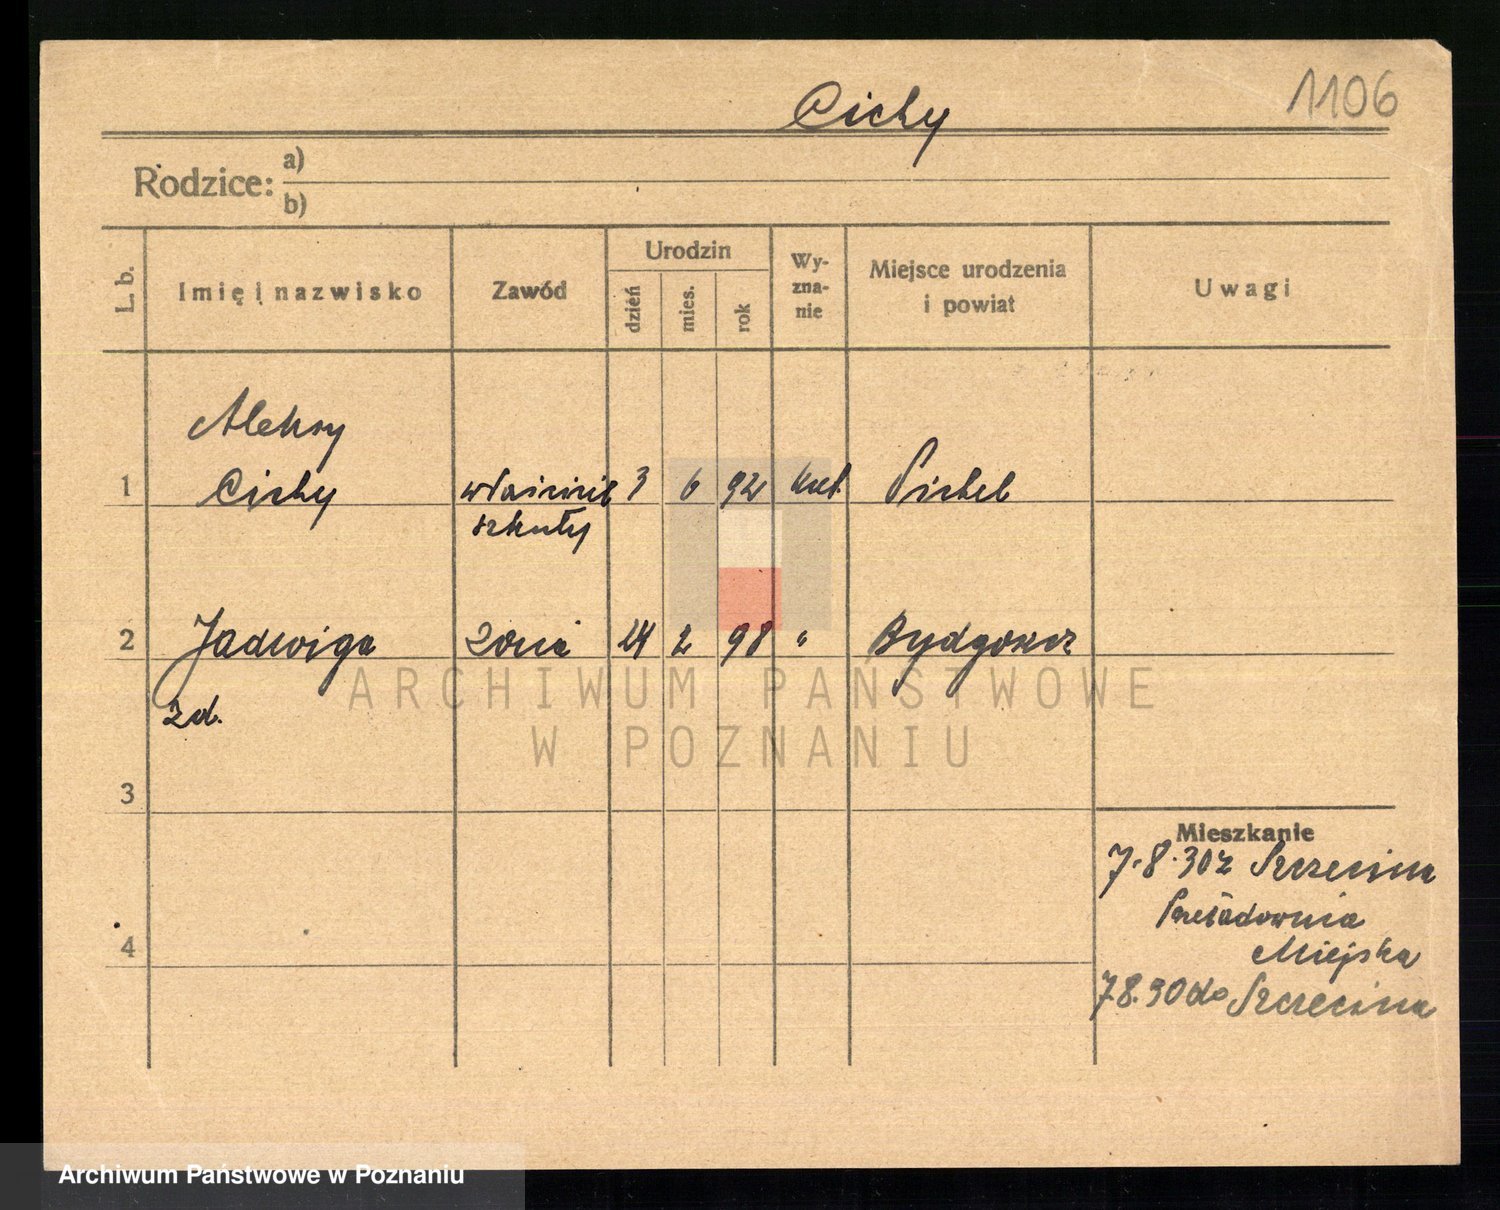 1106
Cichy
Rodzice: a)
b)
L. b.
Imię i nazwisko
Zawód
Urodzin
dzień
mies.
rok
Wy-
zna-
nie
Miejsce urodzenia
i powiat
Uwagi
Aleksy
1 Cichy właściciel 3 6 92 kat. Pichel
szkuty
2 Jadwiga żona 24 2 98 " Bydgoszcz
zd.
3
4
Mieszkanie
7.8.30 z Szczecina
Przeładownia
Miejska
7.8.30 do Szczecina
ARCHIWUM PAŃSTWOWE
W POZNANIU
Archiwum Państwowe w Poznaniu